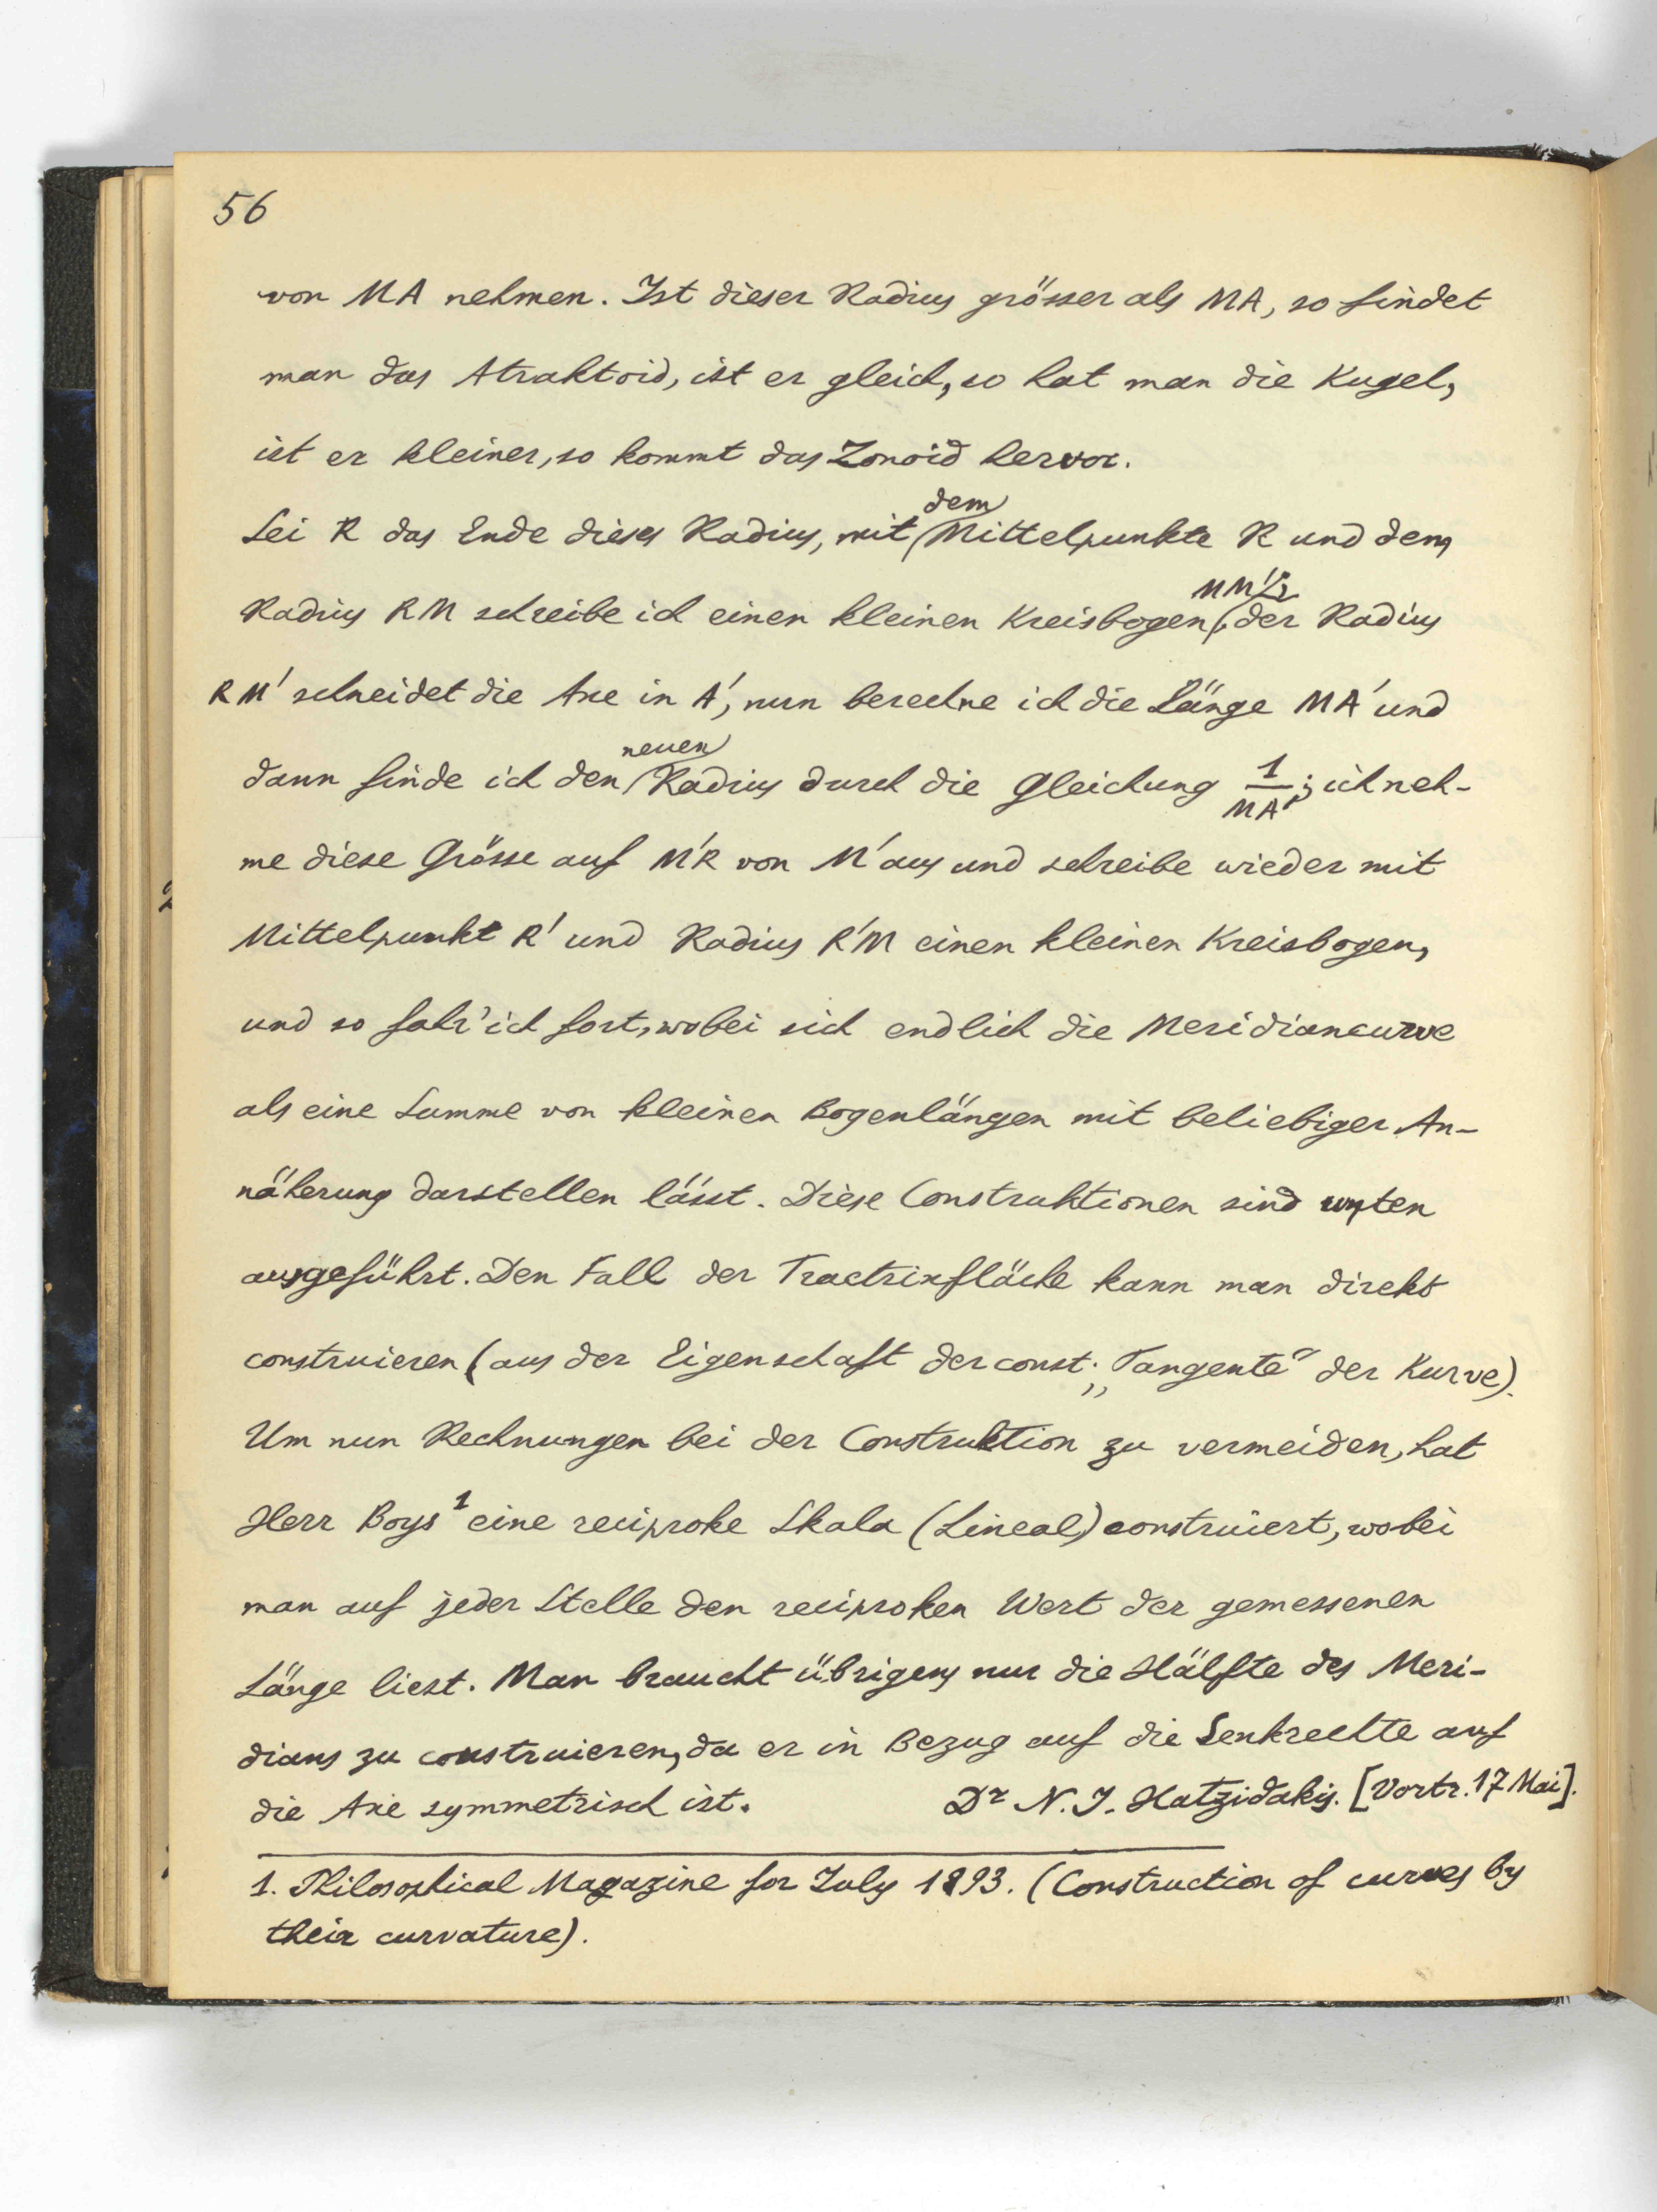 56
von MA nehmen. Ist dieser Radius grösser als MA, so findet
man das Atraktoid, ist er gleich, so hat man die Kugel,
ist er kleiner, so kommt das Zonoid hervor.
Sei R das Ende dieses Radius, mit dem Mittelpunkte R und dem
Radius RM schreibe ich einen kleinen Kreisbogen MM', der Radius
RM' schneidet die Axe in A', nun berechne ich die Länge MA' und
dann finde ich den neuen Radius durch die Gleichung 1/MA'; ich neh-
me diese Grösse auf M'R von M' aus und schreibe wieder mit
Mittelpunkt R' und Radius R'M einen kleinen Kreisbogen,
und so fahr' ich fort, wobei sich endlich die Meridiancurve
als eine Summe von kleinen Bogenlängen mit beliebiger An-
näherung darstellen lässt. Diese Construktionen sind unten
ausgeführt. Den Fall der Tractrixfläche kann man direkt
construieren (aus der Eigenschaft der const. „Tangente“ der Kurve).
Um nun Rechnungen bei der Construktion zu vermeiden, hat
Herr Boys¹ eine reciproke Skala (Lineal) construiert, wobei
man auf jeder Stelle den reciproken Wert der gemessenen
Länge liest. Man braucht übrigens nur die Hälfte des Meri-
dians zu construieren, da er in Bezug auf die Senkrechte auf
die Axe symmetrisch ist. Dr N. J. Hatzidakis. [Vortr. 17 Mai].
1. Philosophical Magazine for July 1893. (Construction of curves by
their curvature).